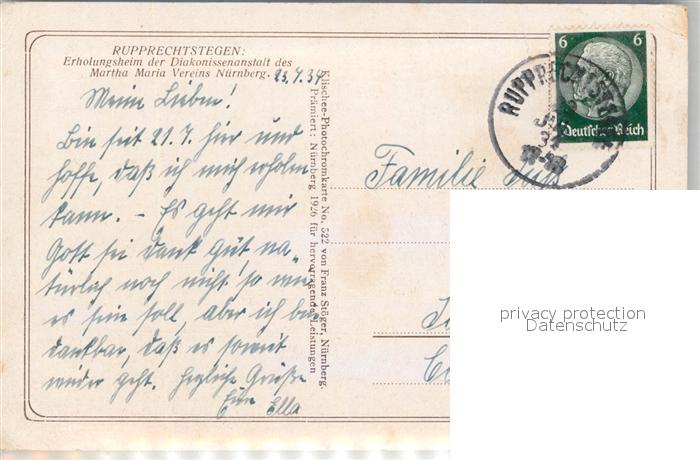 RUPPRECHTSTEGEN:
Erholungsheim der Diakonissenanstalt des
Martha Maria Vereins Nürnberg. 23.7.34
Meine Lieben!
Bin seit 21.7. hier und
hoffe, daß ich mich erholen
kann. – Es geht mir
Gott sei Dank gut, na-
türlich noch nicht so wie
es sein soll, aber ich bin
dankbar, daß es soweit
wieder geht. Herzliche Grüße
Eure Ella
Klischee-Photochromkarte No. 522 von Franz Stöger, Nürnberg.
Prämiert: Nürnberg 1926 für hervorragende Leistungen
6 6
Deutsches Reich
RUPPRECHTSTEGEN
Familie
privacy protection
Datenschutz